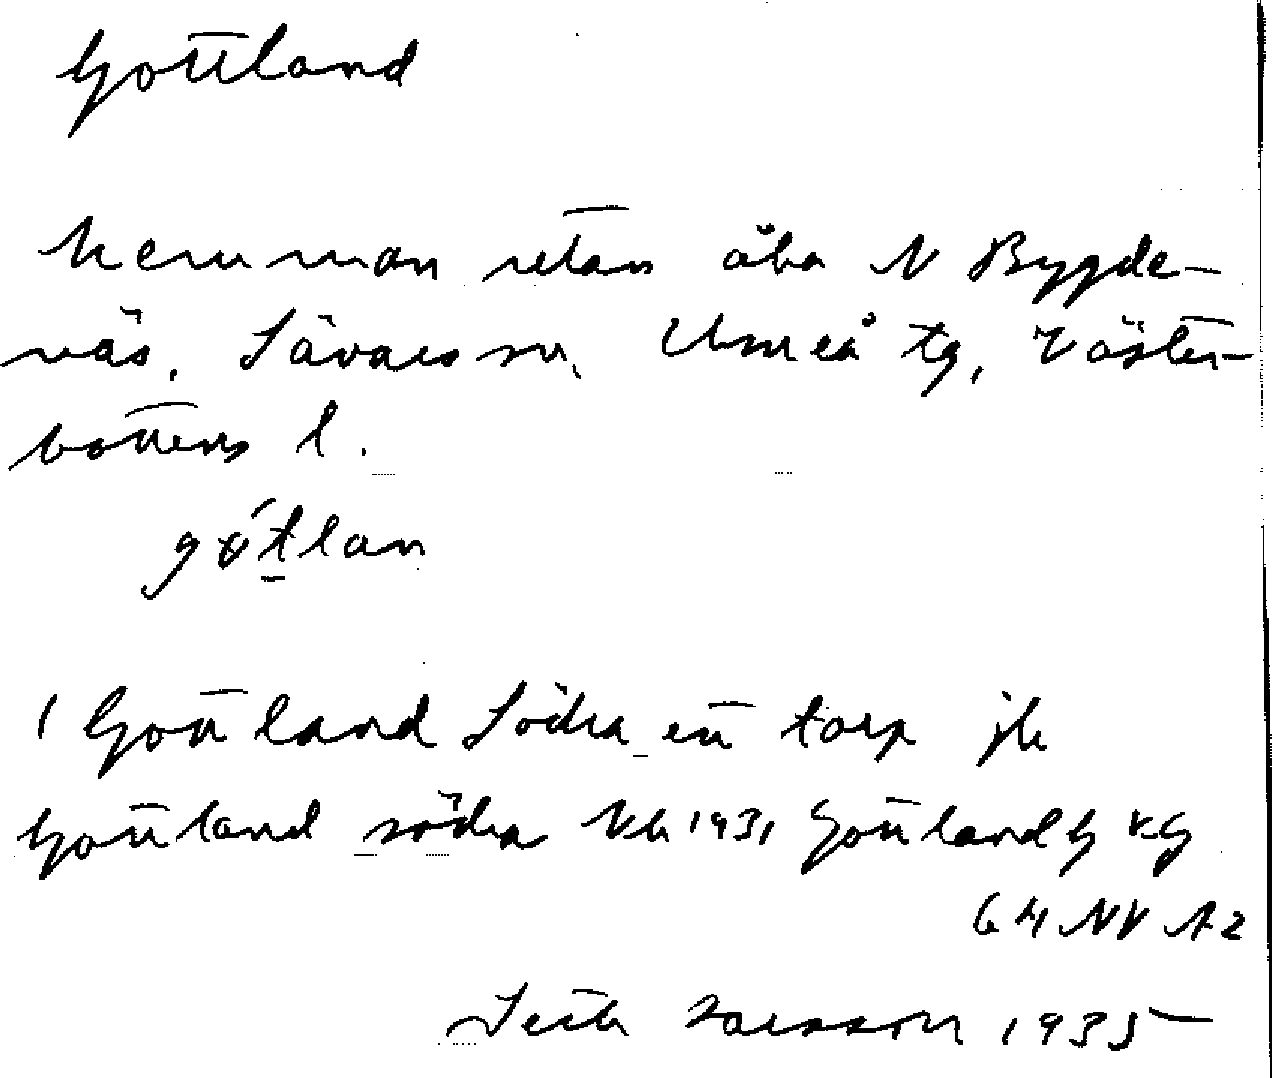 Gottland
hemman utan åbo N Bygde-
näs, Sävars sn, Umeå tg, Väster-
bottens l.
gótlan
1 Gottland Södra ett torp jb
Gottland södra Kb 1931 Gottland G KG
64 NV A2
Larsson 1935